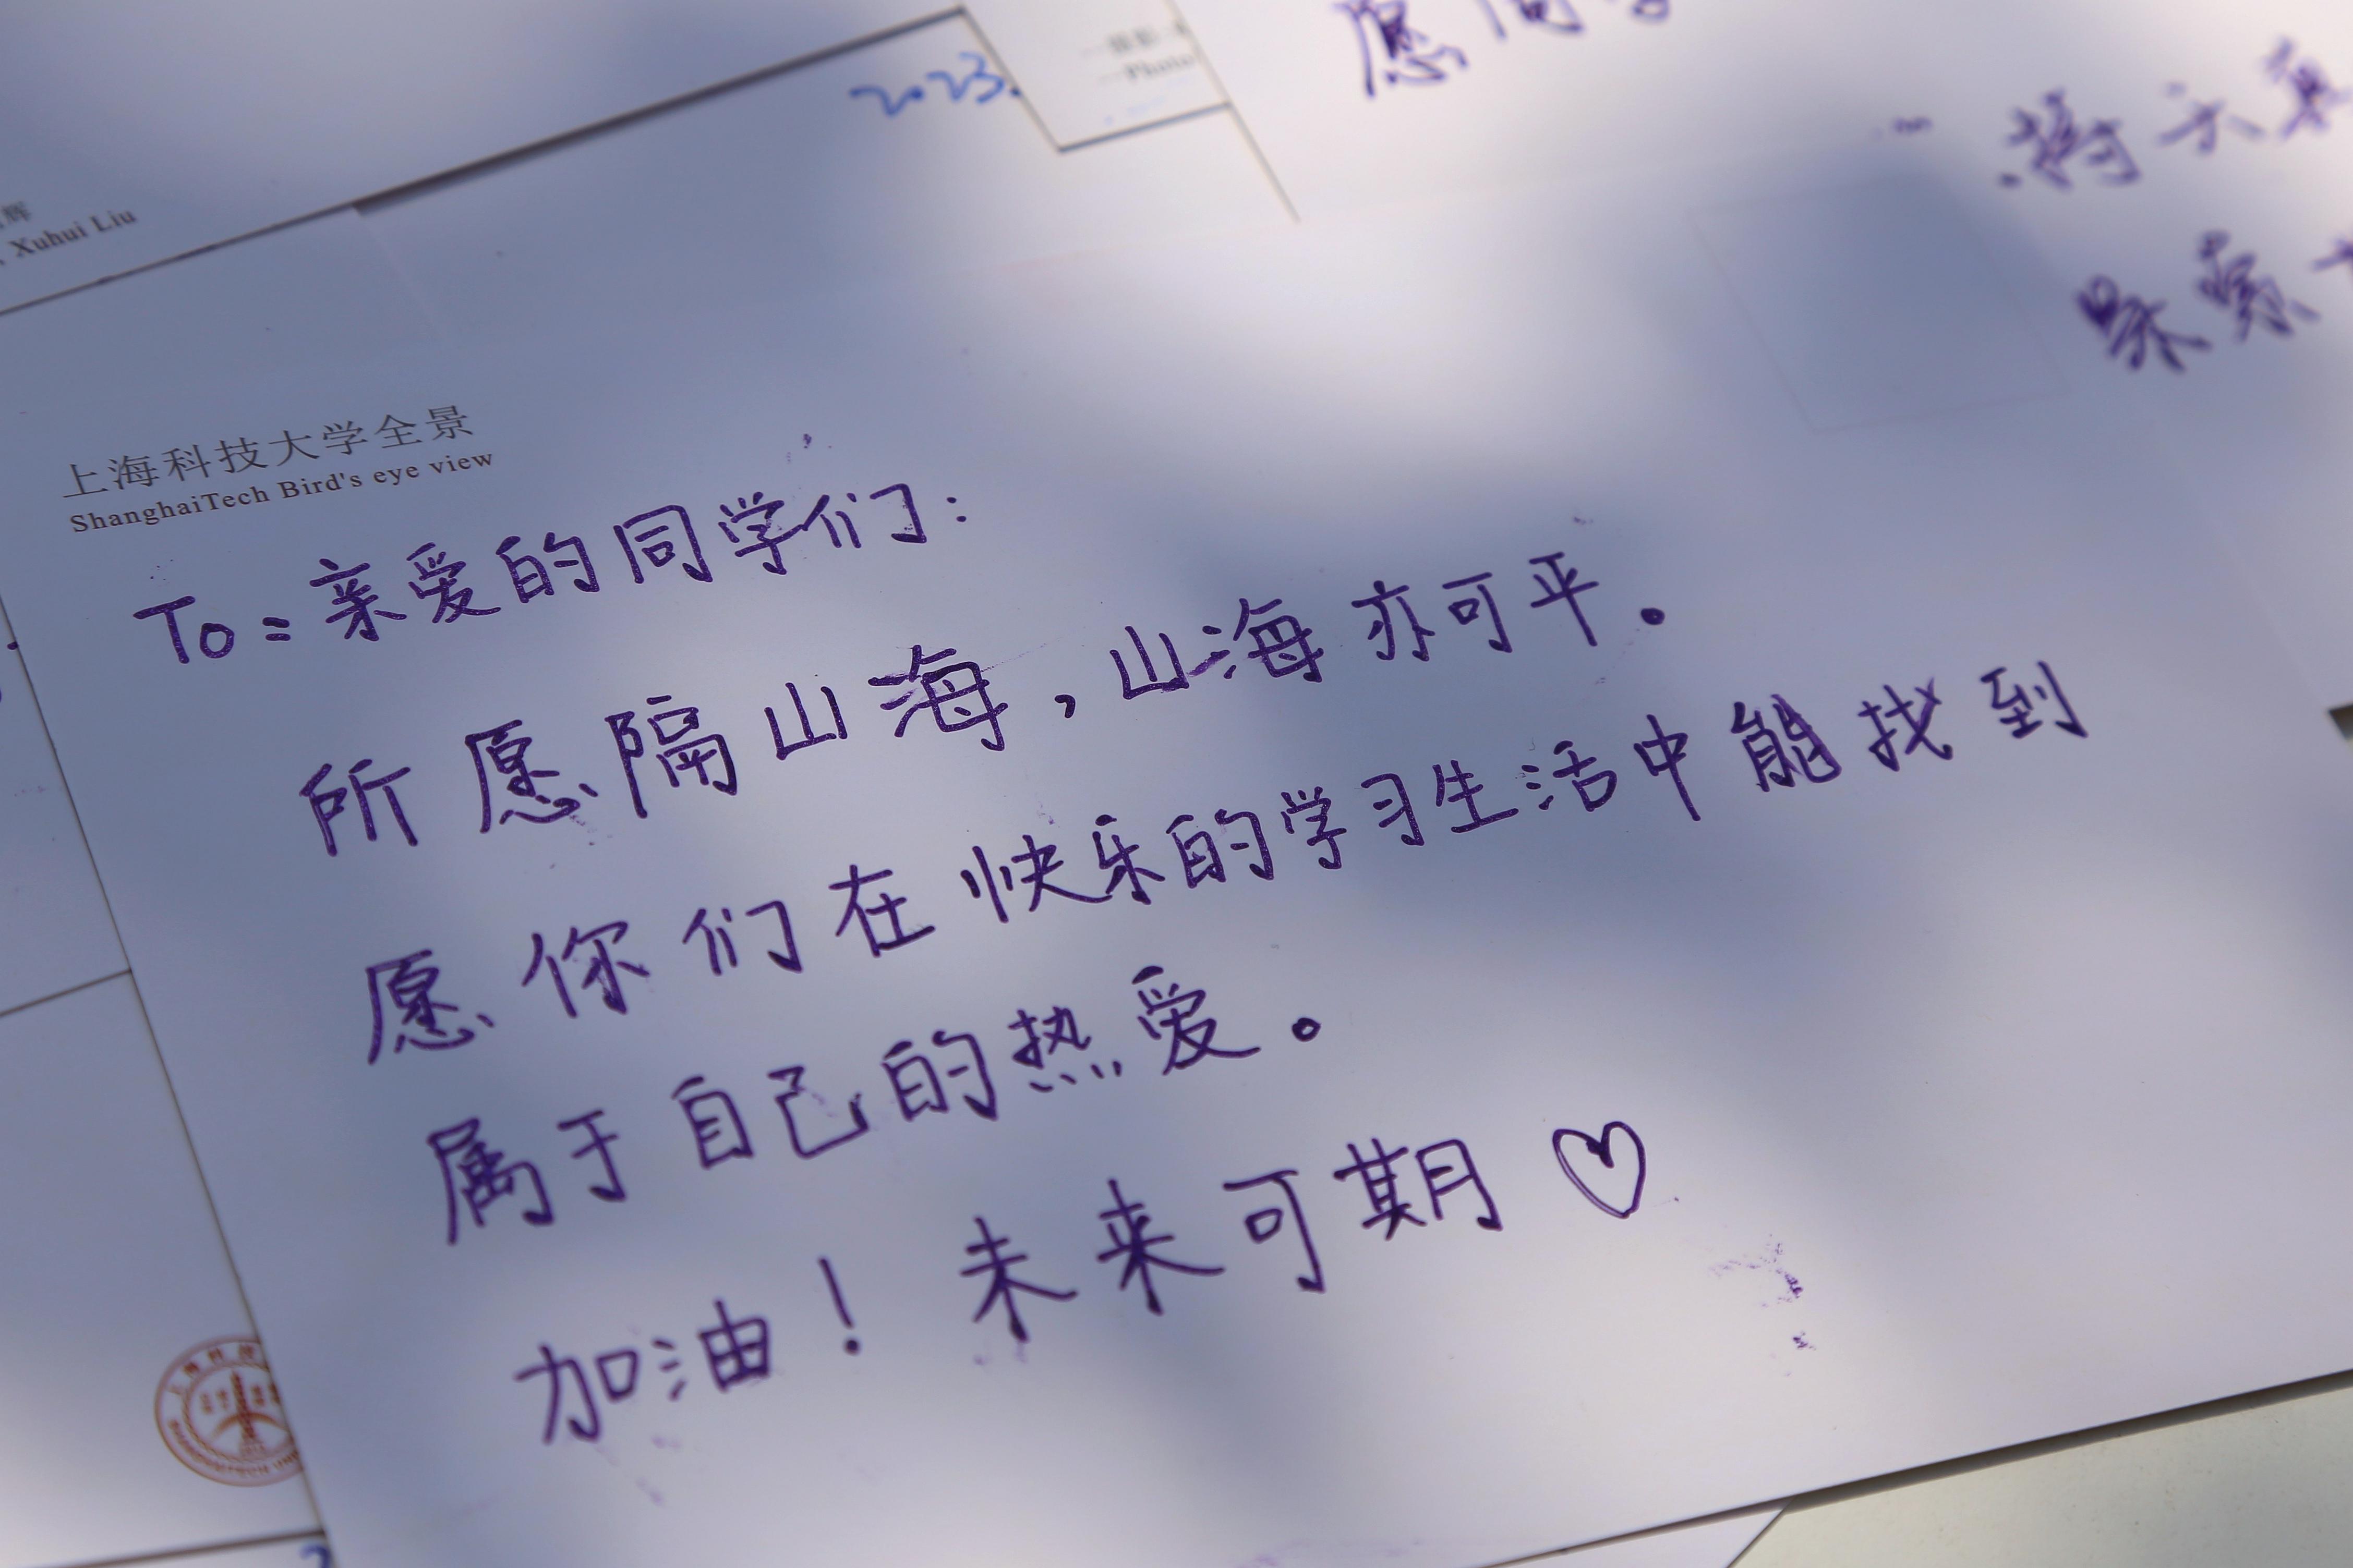 2023.
Photo
Xuhui Liu
上海科技大学全景
ShanghaiTech Bird's eye view
To：亲爱的同学们：
所愿隔山海，山海亦可平。
愿你们在快乐的学习生活中能找到
属于自己的热爱。
加油！未来可期♡